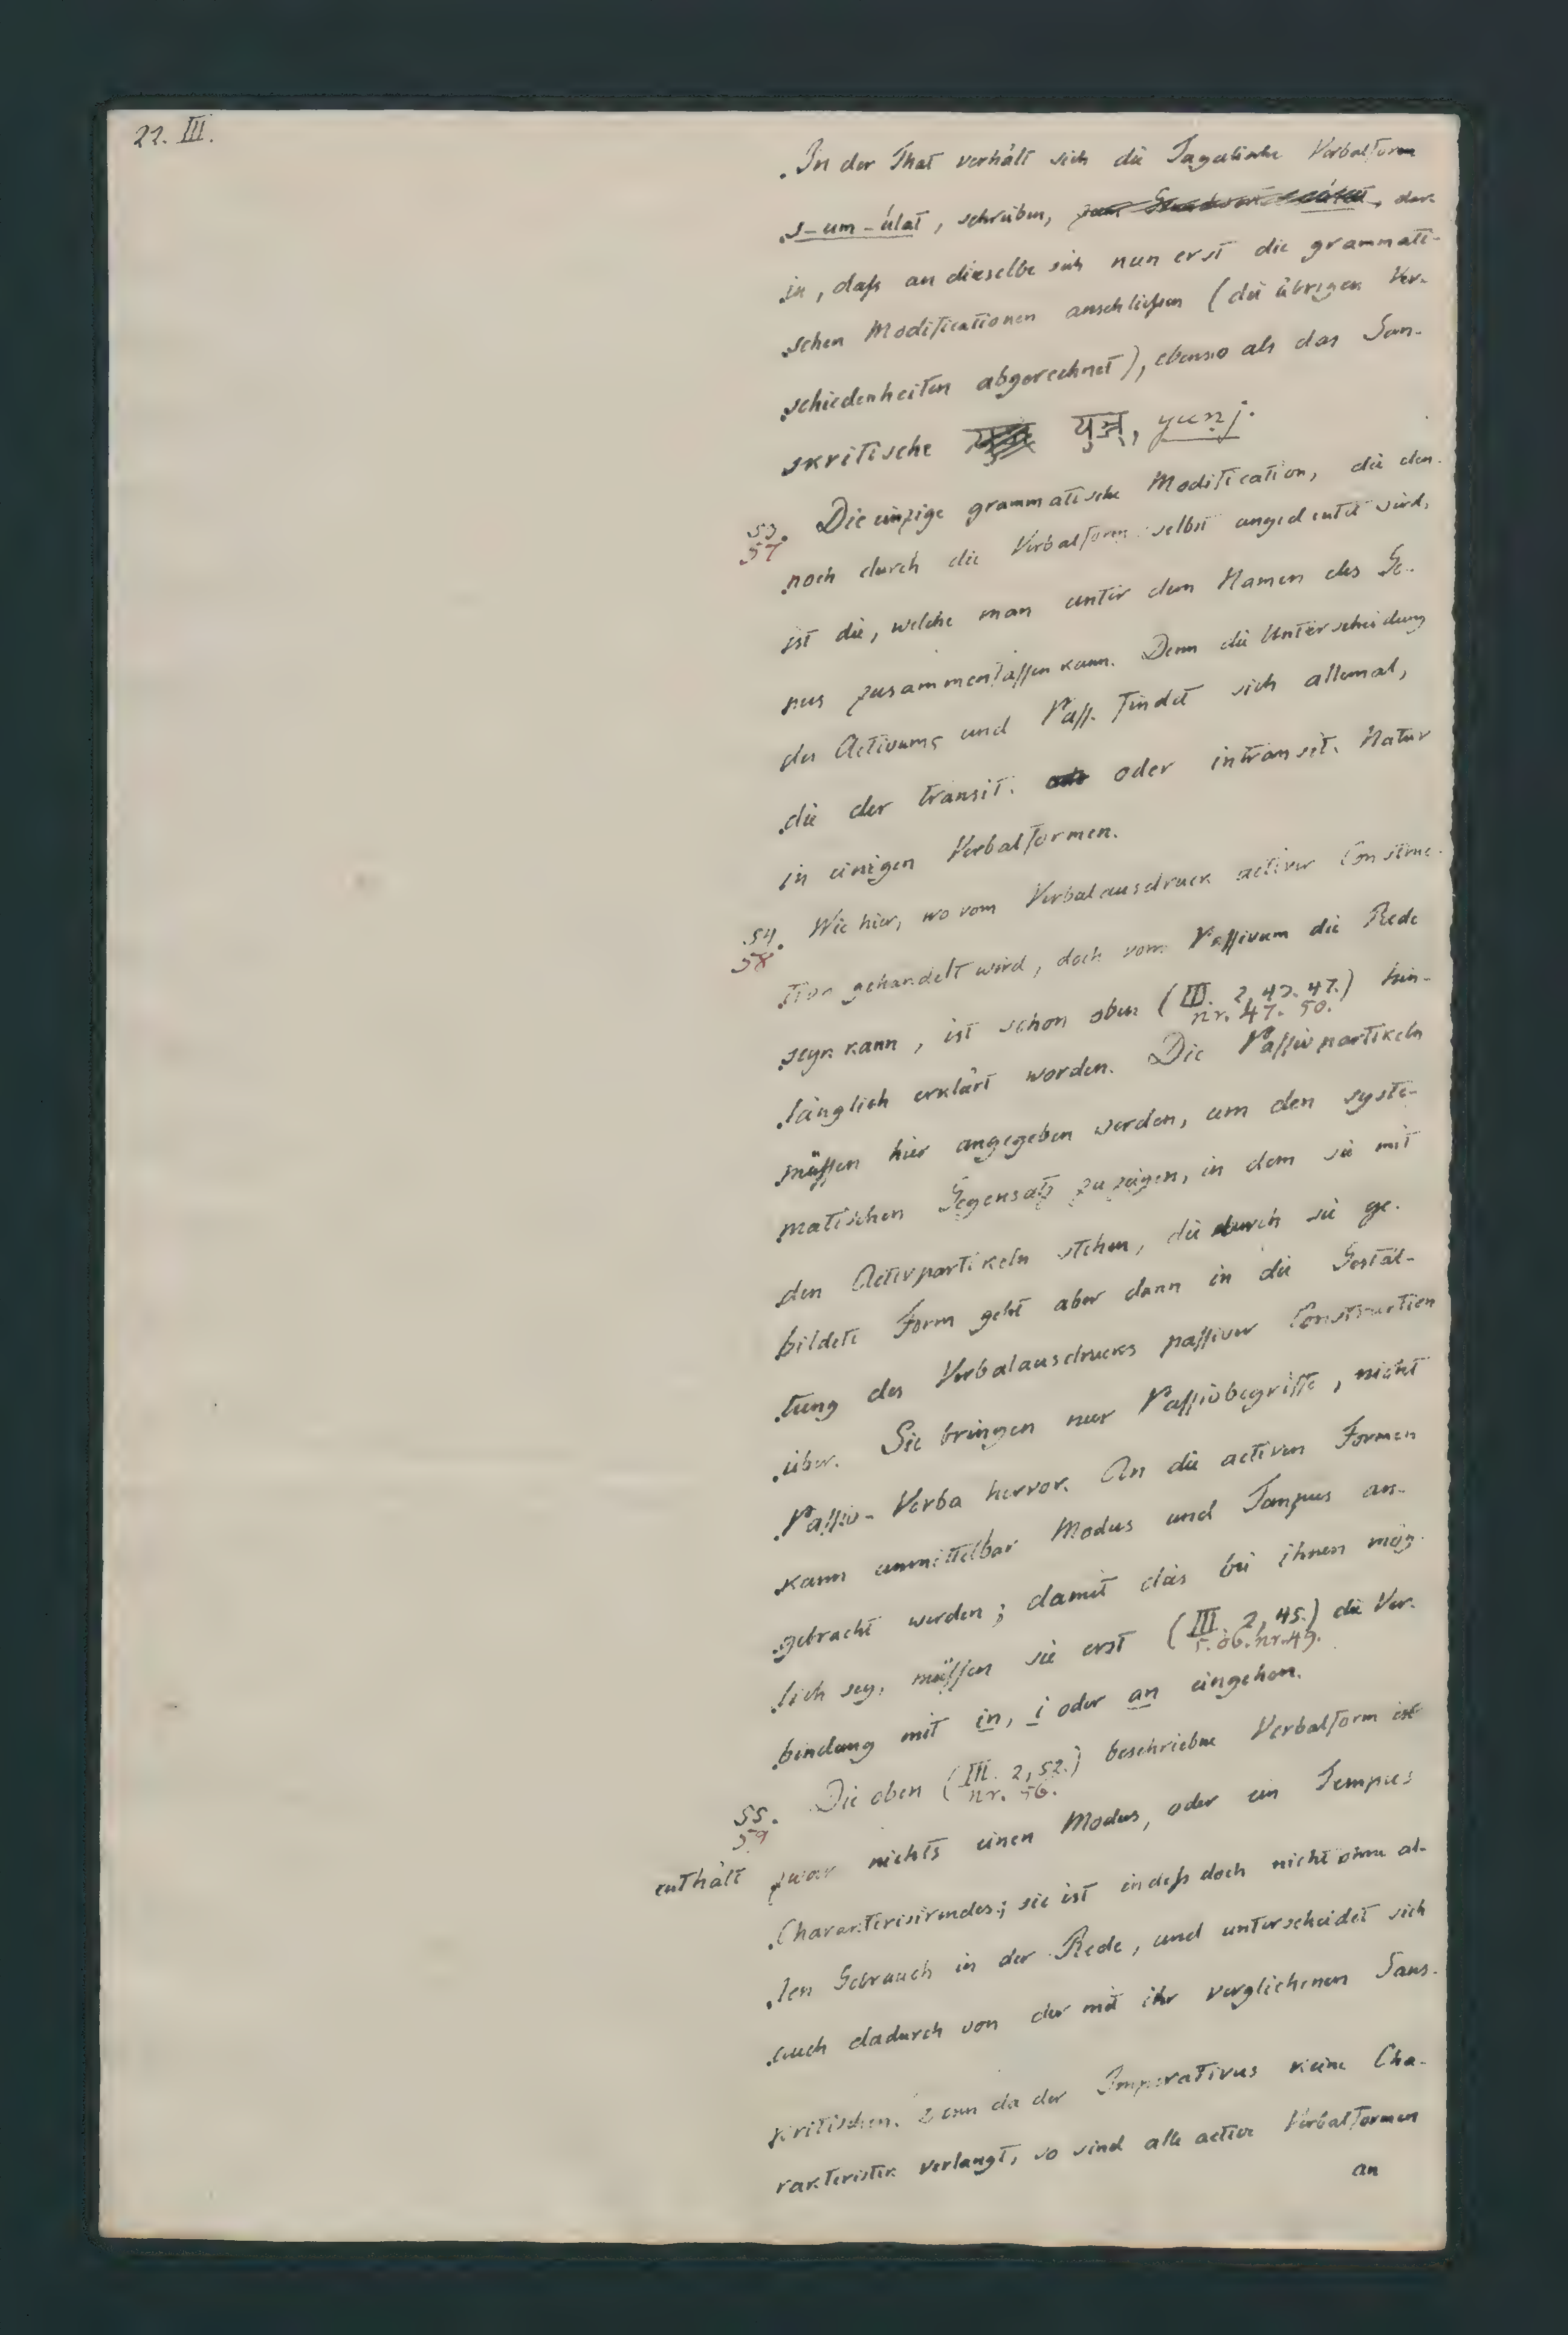 22. III.
In der That verhält sich die Tagalische Verbalform
s-um-úlat, schreiben, dar-
in, daſs an dieselbe sich nun erst die grammati-
schen Modificationen anschlieſsen (die übrigen Ver-
schiedenheiten abgerechnet), ebenso als das San-
skritische युञ्ज्, yunj.
53. Die einzige grammatische Modification, die den-
57
noch durch die Verbalform selbst angedeutet wird,
ist die, welche man unter dem Namen des Ge-
nus zusammenfaſsen kann. Denn die Unterscheidung
des Activums und Paſs. findet sich allemal,
die der transit. oder intransit. Natur
in einigen Verbalformen.
54. Wie hier, wo vom Verbalausdruck activer Construc-
58
tion gehandelt wird, doch vom Paſsivum die Rede
seyn kann, ist schon oben (III. 2, 43. 47.) hin-
nr. 47. 50.
länglich erklärt worden. Die Paſsivpartikeln
müſsen hier angegeben werden, um den syste-
matischen Gegensatz zu zeigen, in dem sie mit
den Activpartikeln stehen, die durch sie ge-
bildete Form geht aber dann in die Gestal-
tung des Verbalausdrucks paſsiver Construction
über. Sie bringen nur Paſsivbegriffe, nicht
Paſsiv-Verba hervor. An die activen Formen
kann unmittelbar Modus und Tempus an-
gebracht werden; damit dies bei ihnen mög-
lich sey, müſsen sie erst (III. 2, 45.) die Ver-
s. ob. nr. 49.
bindung mit in, i oder an eingehen.
55. Die oben (III. 2, 52.) beschriebne Verbalform ist
59 nr. 56.
enthält zwar nichts einen Modus, oder ein Tempus
Charakterisirendes; sie ist indeſs doch nicht ohne al-
len Gebrauch in der Rede, und unterscheidet sich
auch dadurch von der mit ihr verglichenen Sans-
kritischen. Denn da der Imperativus keine Cha-
rakteristik verlangt, so sind alle active Verbalformen
an